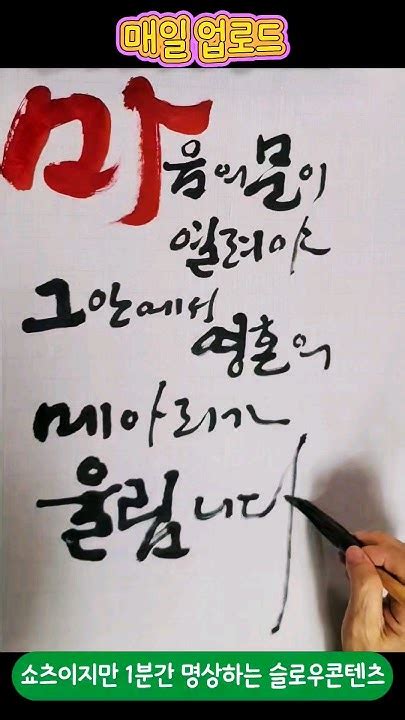 매일 업로드
마음의 문이
열려야
그 안에서 영혼의
메아리가
울립니다
쇼츠이지만 1분간 명상하는 슬로우콘텐츠